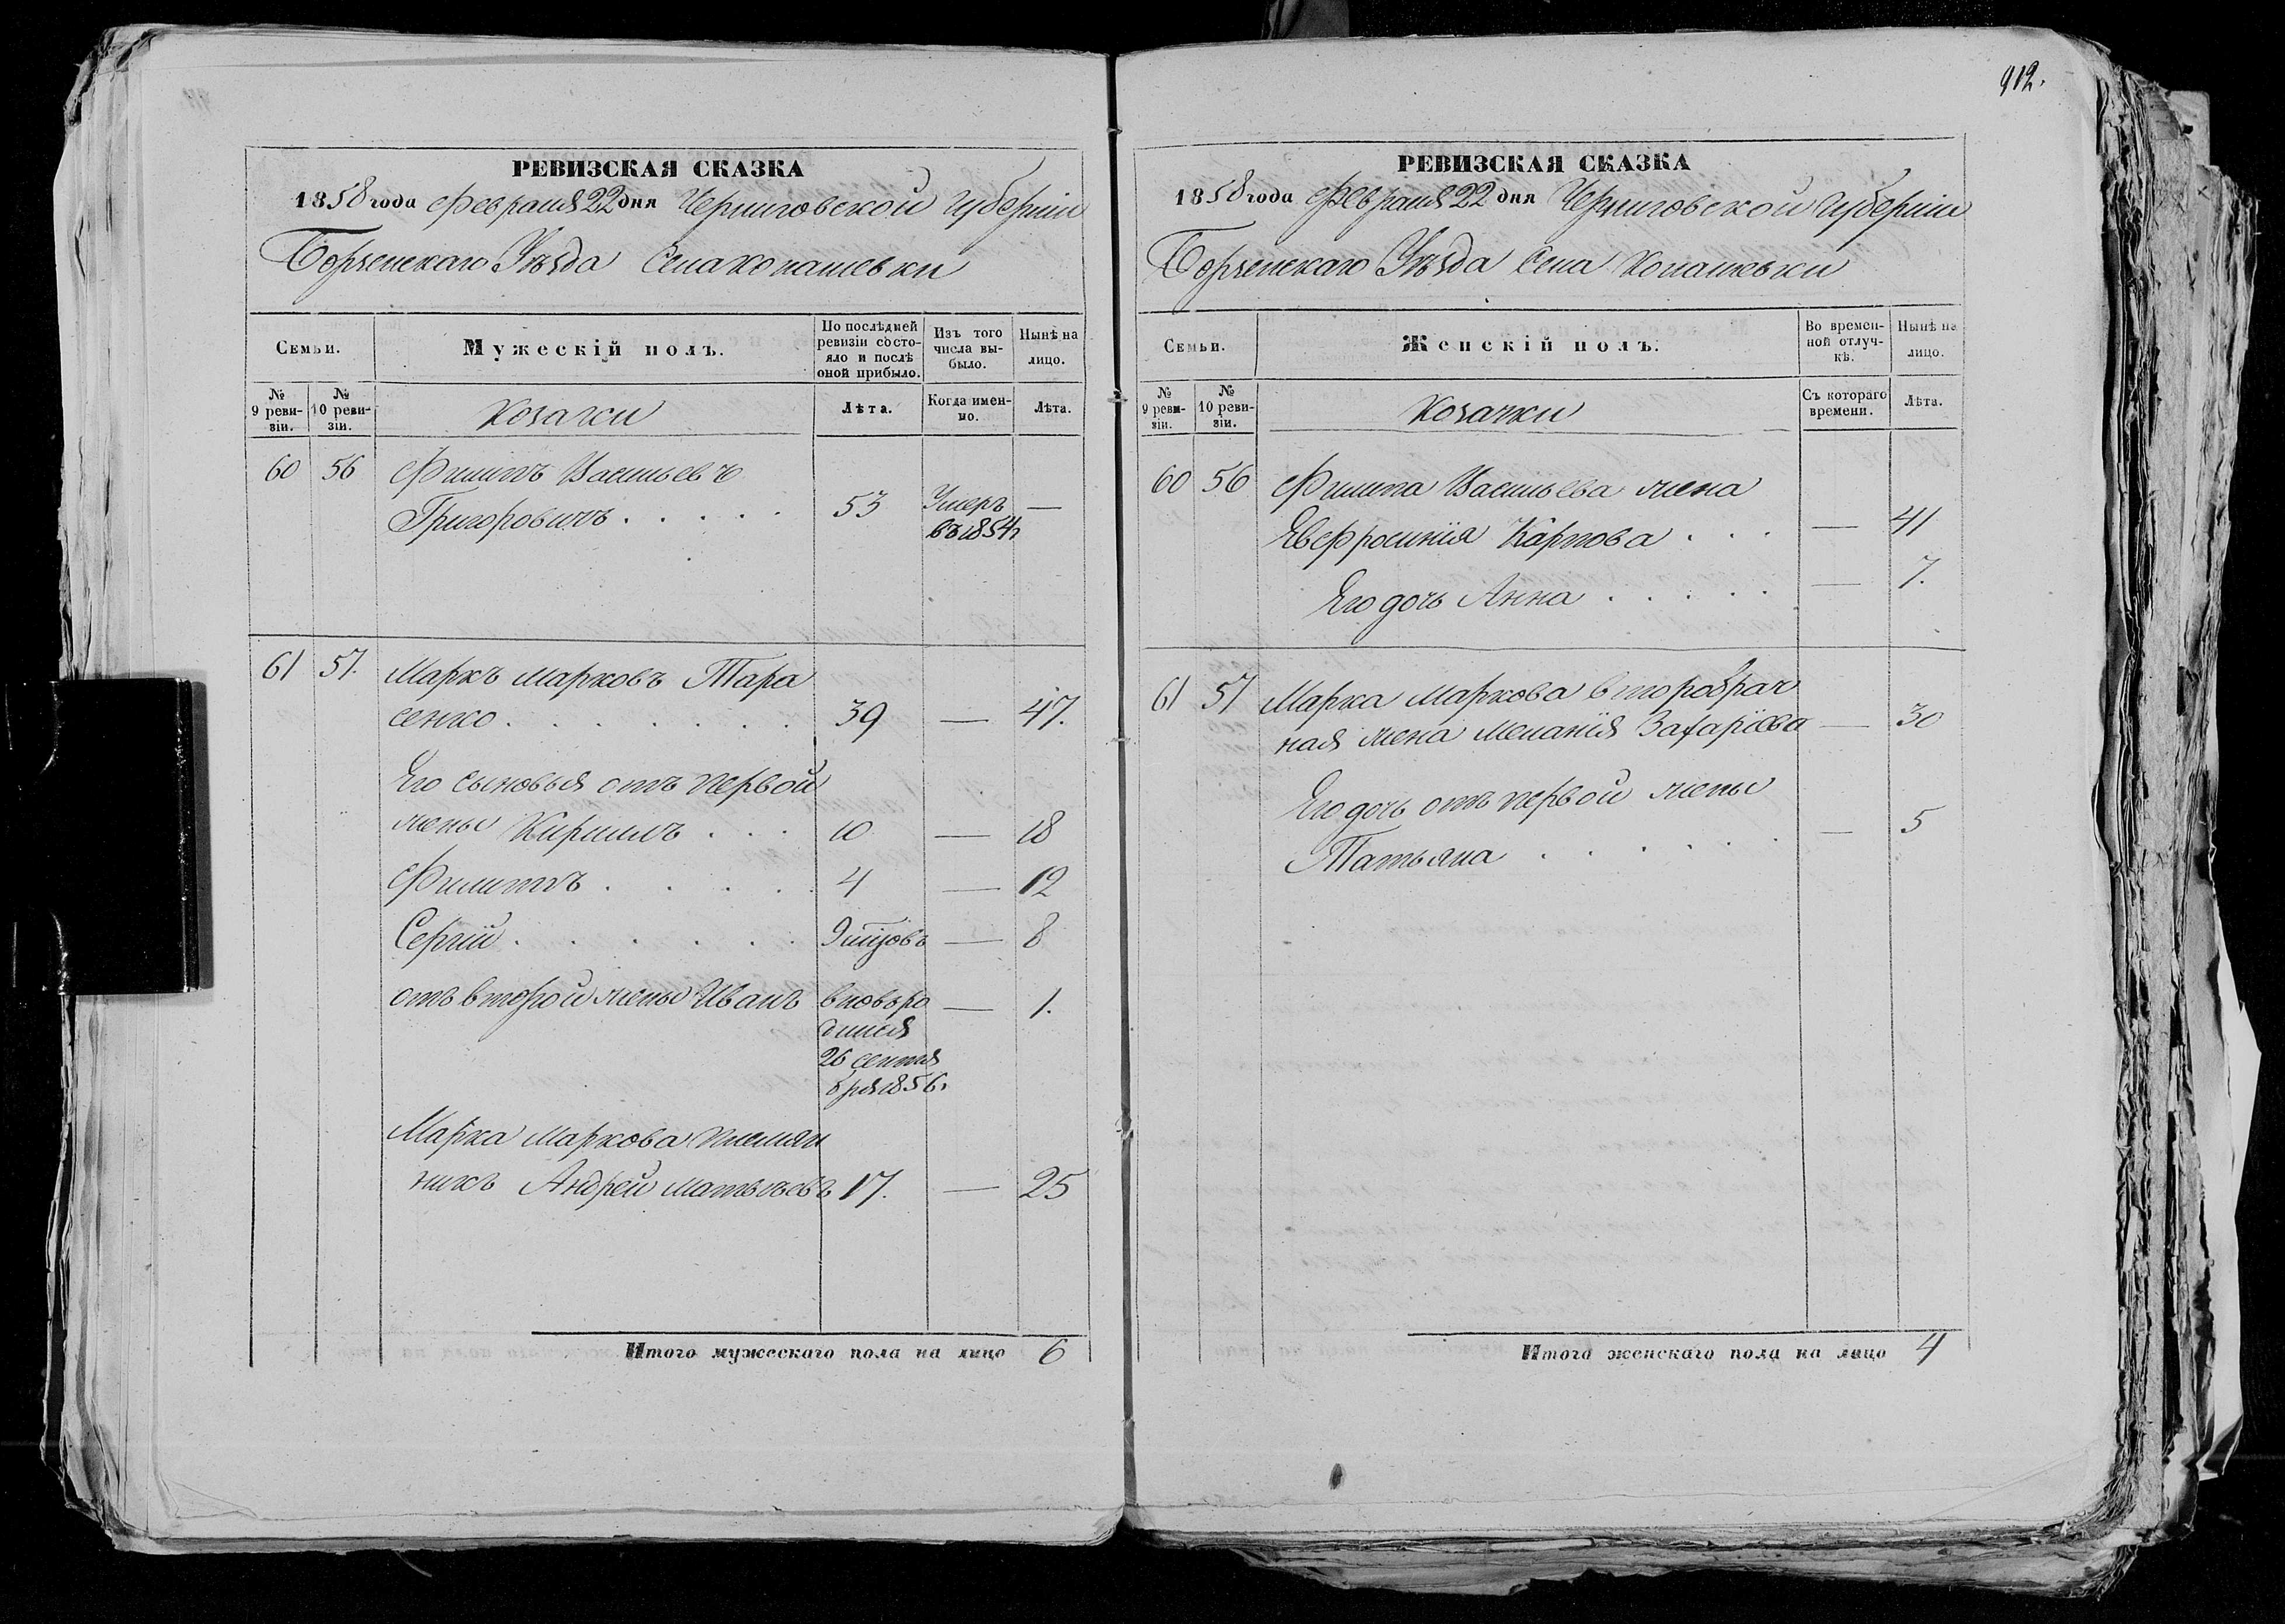 912.
РЕВИЗСКАЯ СКАЗКА
1858 года Февраля 22 дня Черниговской губернии
Борзенскаго Уѣзда Села Копашевки
Семьи.
Мужескій полъ.
По послѣдней ревизіи состо-
яло и послѣ
оной прибыло.
Изъ того
числа вы-
было.
Нынѣ на
лицо.
№ 9 реви-
зіи.
№ 10 реви-
зіи.
Козаки
Лѣта.
Когда имен-
но.
Лѣта.
60 56 Филипъ Васильевъ
Григоровичъ . . . . . 53 Умеръ —
въ 1854
61 57. Маркъ Марковъ Тара
сенко . . . . . . . 39 — 47.
Его сыновья отъ первой
жены Кирилъ . . . 10 — 18
Филипъ . . . . . 4 — 12
Сергій . . . . . . 9 — 8
отъ второй жены Иванъ вновьро — 1.
дился
26 сентя
бря 1856.
Марка Маркова племян
никъ Андрей Матвѣевъ 17. — 25
Итого мужескаго пола на лицо 6
РЕВИЗСКАЯ СКАЗКА
1858 года Февраля 22 дня Черниговской губернии
Борзенскаго Уѣзда Села Копашевки
Семьи.
Женскій полъ.
Во времен-
ной отлуч-
кѣ.
Нынѣ на
лицо.
№ 9 реви-
зіи.
№ 10 реви-
зіи.
Козачки
Съ котораго
времени.
Лѣта.
60 56 Филипа Васильева жена
Евфросинія Карпова . . . — 41
Его дочь Анна . . . . . — 7.
61 57 Марка Маркова второбрач
ная жена Меланія Захаріева — 30
Его дочь отъ первой жены
Татьяна . . . . . . — 5
Итого женскаго пола на лицо 4